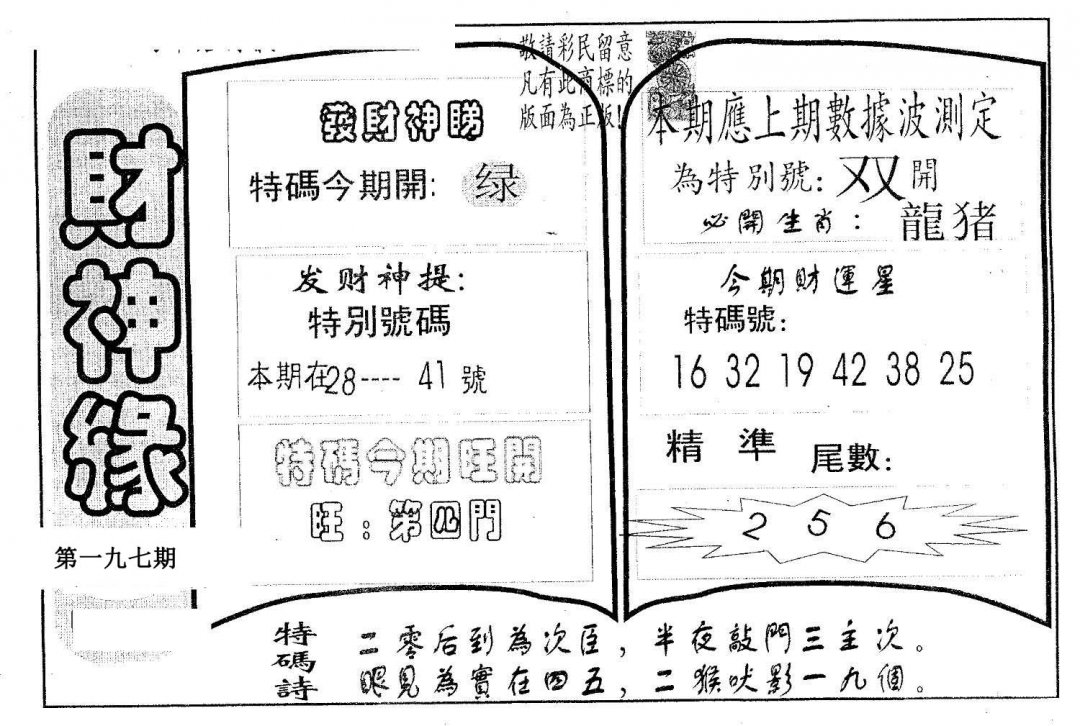 財神緣
第一九七期
敬請彩民留意
凡有此商標的
版面為正版!
發財神睇
特碼今期開: 绿
发财神提:
特別號碼
本期在28---- 41 號
特碼今期旺開
旺:第四門
本期應上期數據波測定
為特別號: 双 開
必開生肖: 龍猪
今期財運星
特碼號:
16 32 19 42 38 25
精 準 尾數:
2 5 6
特碼詩
二零后到為次臣,半夜敲門三主次。
眼見為實在四五,二猴吠影一九個。